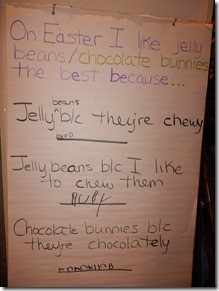 On Easter I like jelly
beans/chocolate bunnies
the best because...
beans
Jelly^b/c they're chewy
Jelly beans b/c I like
to chew them
Chocolate bunnies b/c
they're chocolately